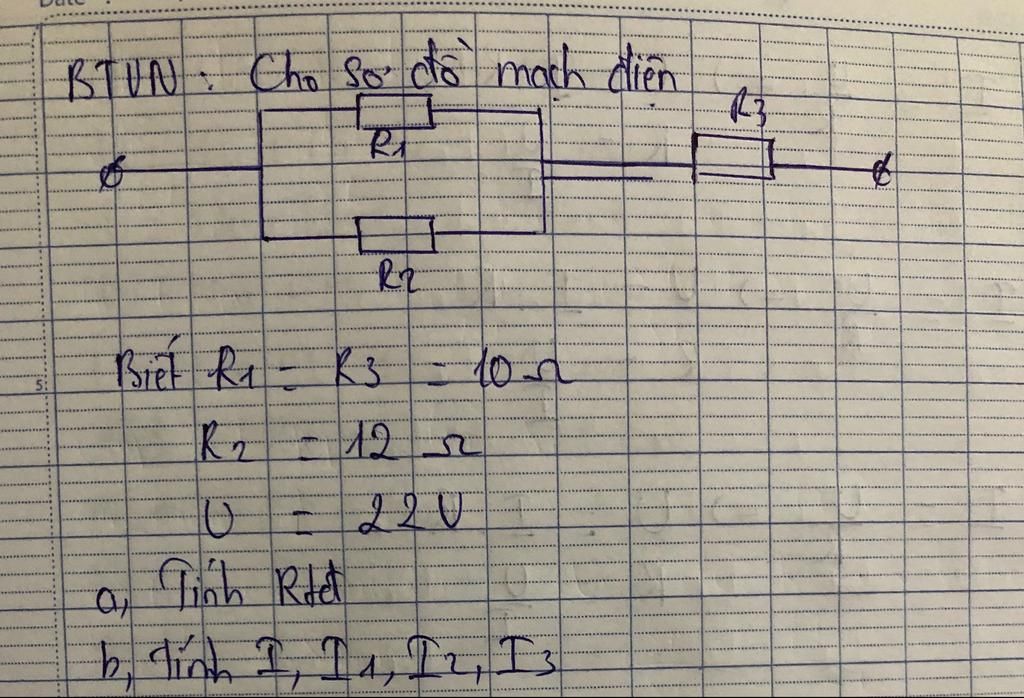 BTVN : Cho sơ đồ mạch điện
R3
R1
R2
Biết R1 = R3 = 10 Ω
R2 = 12 Ω
U = 22V
a, Tính Rtđ
b, Tính I, I1, I2, I3